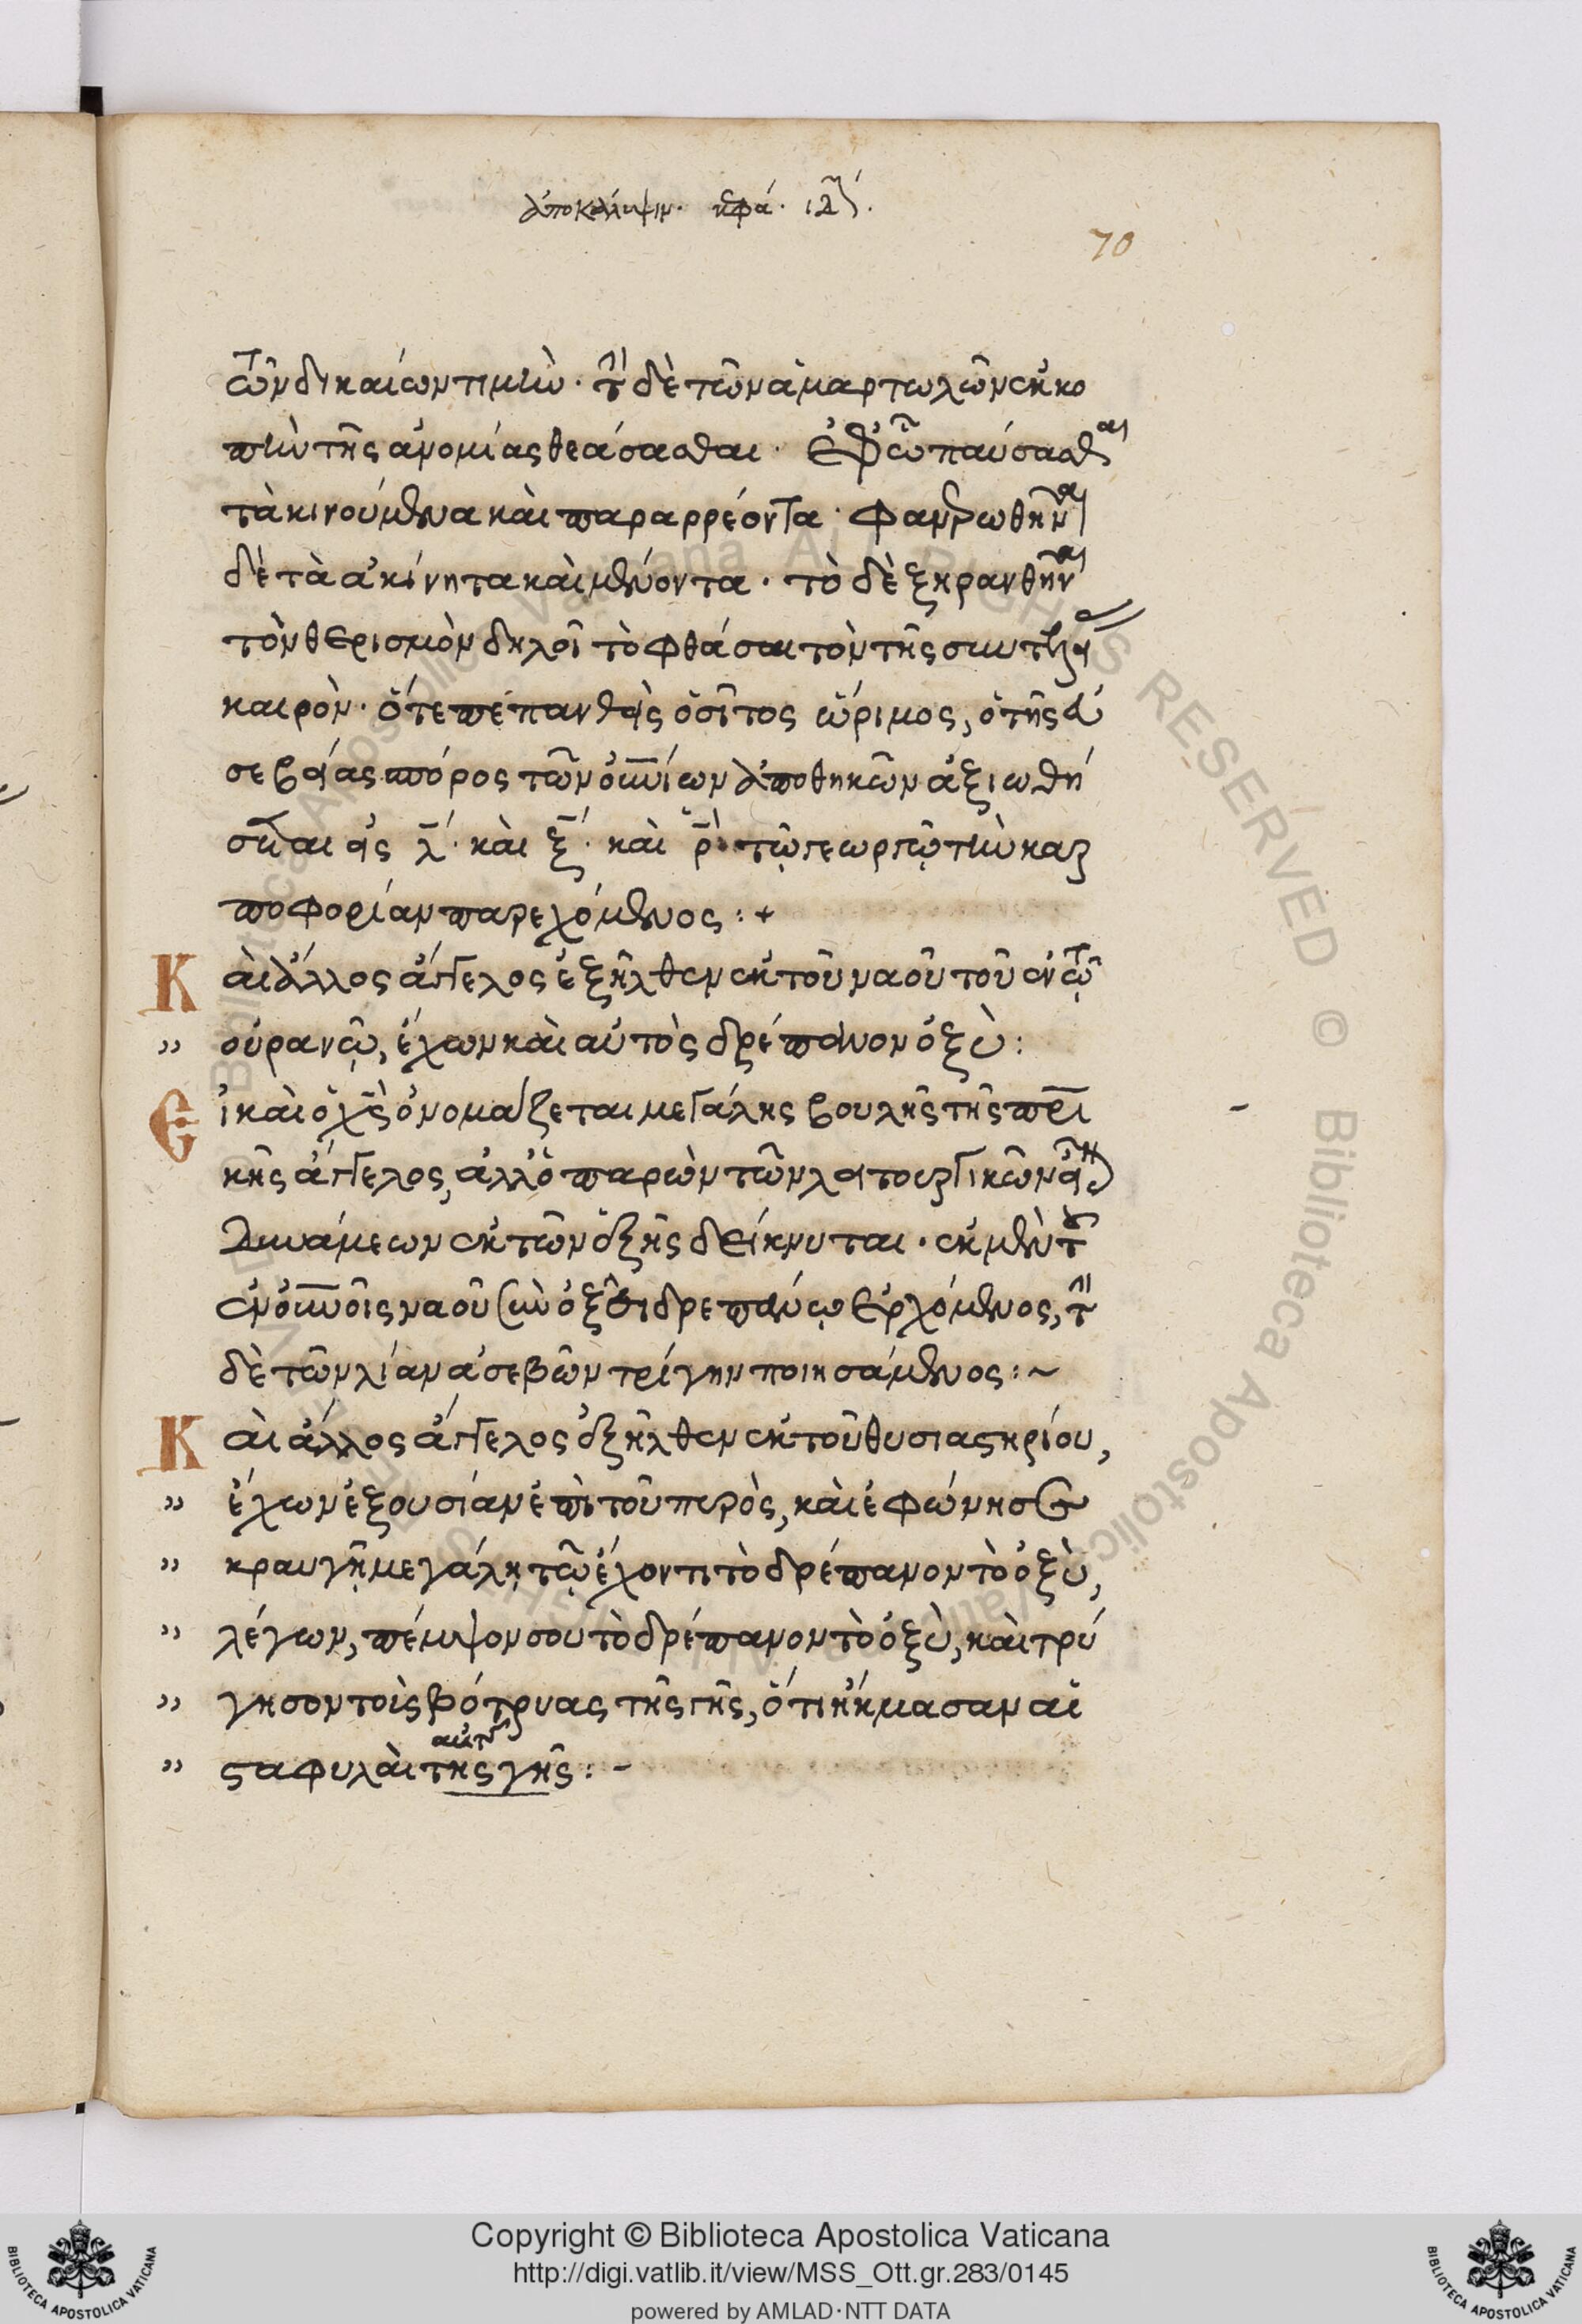 ἀποκάλυψιν. κεφά. ιδ.
70
τῶν δικαίων τιμὴν· τὴν δὲ τῶν ἁμαρτωλῶν ἐκκο
πὴν τῆς ἀνομίας θεάσασθαι· ἐφ' ᾧ παύσασθαι
τὰ κινούμενα καὶ παραρρέοντα· φανερωθῆναι
δὲ τὰ ἀκίνητα καὶ μένοντα· τὸ δὲ ξηρανθῆναι
τὸν θερισμὸν δηλοῖ τὸ φθάσαι τὸν τῆς συντελείας
καιρὸν· ὅτε πεπανθεὶς ὁ σῖτος ὥριμος, ὁ τῆς εὐ
σεβείας σπόρος τῶν οὐνίων ἀποθηκῶν ἀξιωθή
σεται εἰς λ̄· καὶ ξ̄· καὶ ρ̄· τῷ γεωργῷ τὴν καρ
ποφορίαν παρεχόμενος:+
Καὶ ἄλλος ἄγγελος ἐξῆλθεν ἐκ τοῦ ναοῦ τοῦ ἐν τῷ
" οὐρανῷ, ἔχων καὶ αὐτὸς δρέπανον ὀξὺ:
Εἰ καὶ ὁ χς ὀνομάζεται μεγάλης βουλῆς τῆς πρι
κῆς ἄγγελος, ἀλλ' ὁ παρὼν τῶν λειτουργικῶν εἶναι
δυνάμεων ἐκ τῶν ἑξῆς δείκνυται· ἐκ μὲν τοῦ
ἐν οὐνοῖς ναοῦ σὺν ὀξεῖ δρεπάνῳ ἐρχόμενος, τὴν
δὲ τῶν λίαν ἀσεβῶν τρίγην ποιησάμενος:~
Καὶ ἄλλος ἄγγελος ἐξῆλθεν ἐκ τοῦ θυσιαστηρίου,
" ἔχων ἐξουσίαν ἐπὶ τοῦ πυρὸς, καὶ ἐφώνησεν
" κραυγῇ μεγάλῃ τῷ ἔχοντι τὸ δρέπανον τὸ ὀξὺ,
" λέγων, πέμψον σου τὸ δρέπανον τὸ ὀξὺ, καὶ τρύ
" γησον τοὺς βότρυας τῆς γῆς, ὅτι ἤκμασαν αἱ
αὐτῆς
" σταφυλαὶ τῆς γῆς:-
Copyright © Biblioteca Apostolica Vaticana
http://digi.vatlib.it/view/MSS_Ott.gr.283/0145
powered by AMLAD·NTT DATA